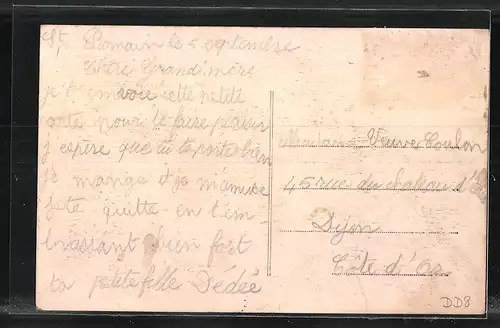 St. Romain le 5 septembre
Chère Grand'mère
je t'envoie cette petite
carte pour te faire plaisir
j'espère que tu te porte bien
je mange et je m'amuse
je te quitte en t'em-
brassant bien fort
ta petite fille Dédée
Madame Veuve Coulon
45 rue du chateau d'
Dijon
Côte d'Or
DD8